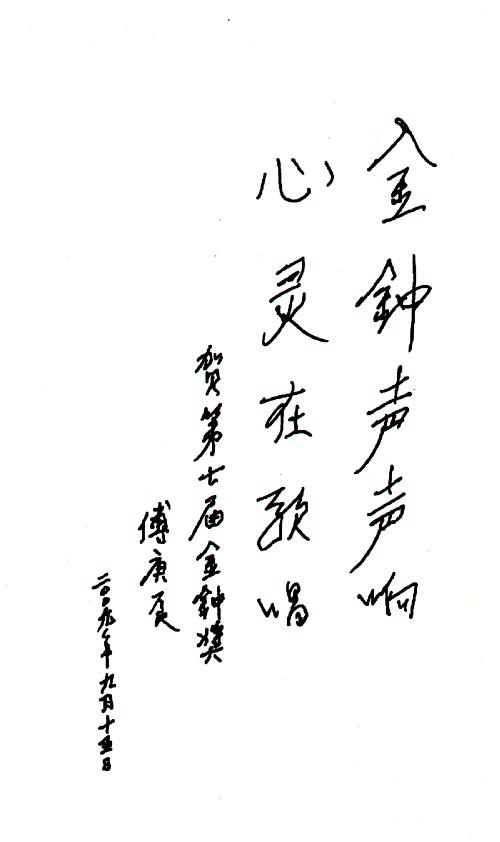 金鈡声声响
心灵在歌唱
贺第七届金鈡奖
傅庚辰
二〇〇九年九月十五日